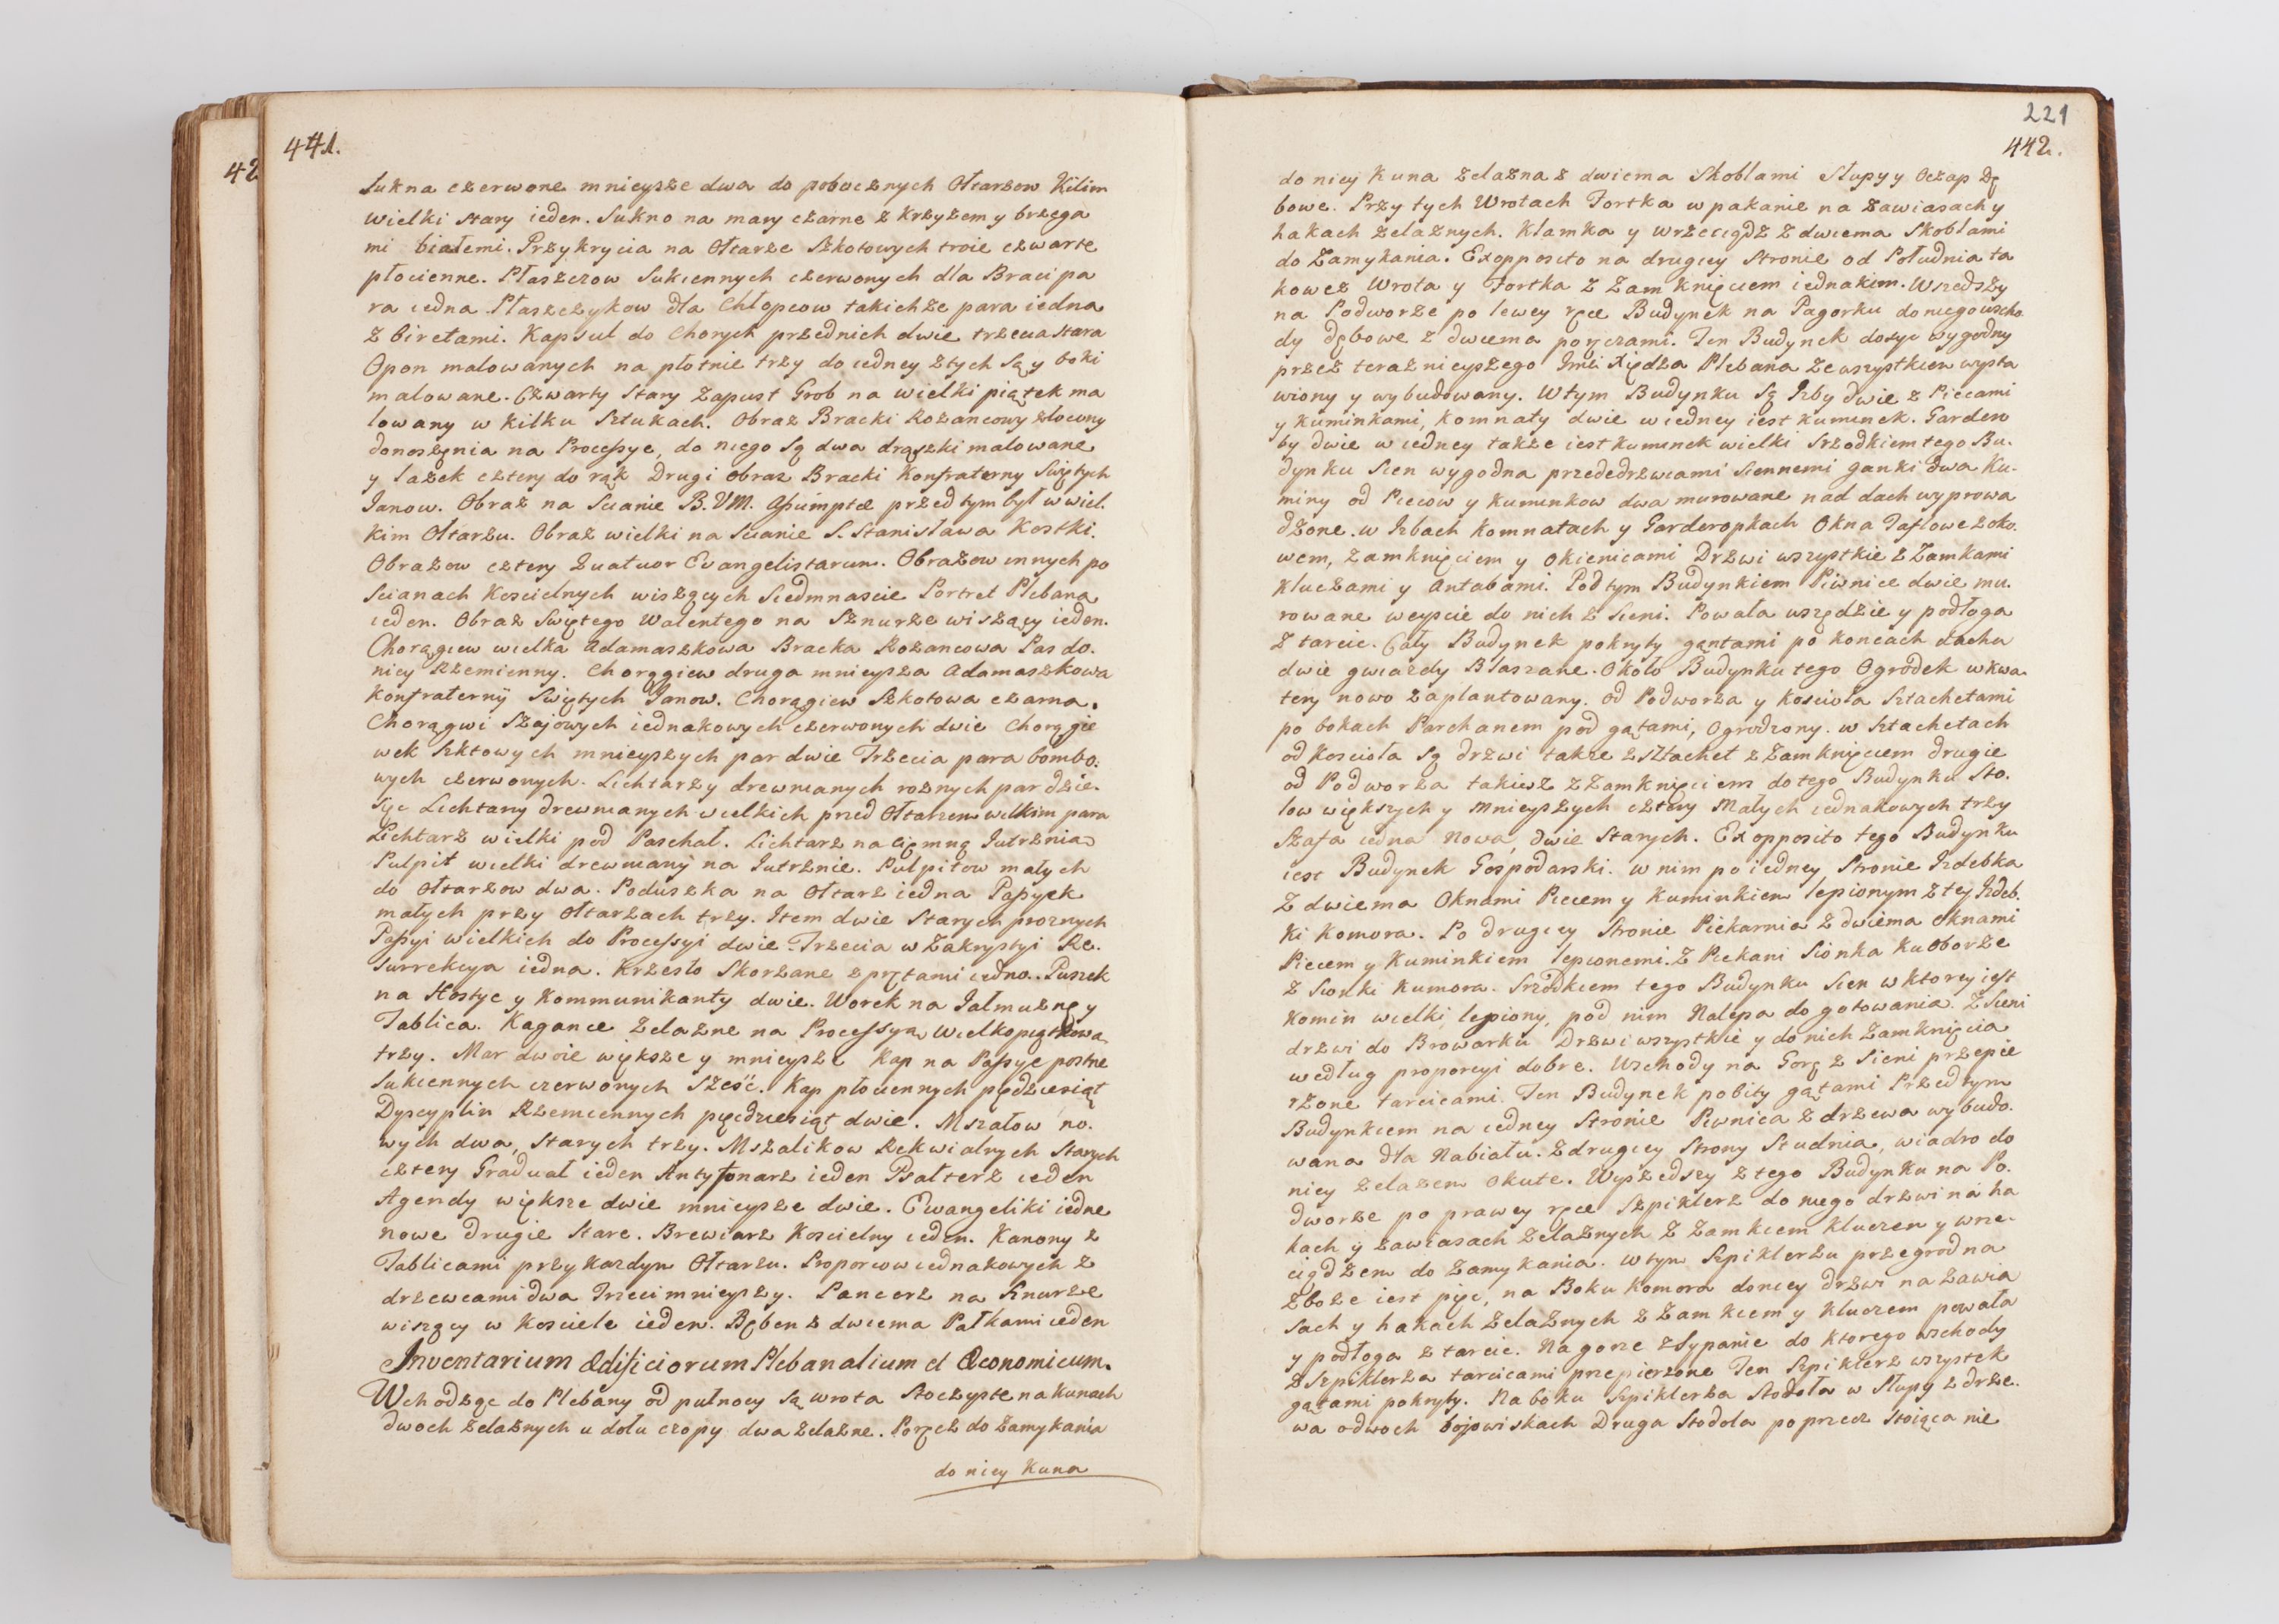 441.
Sukna czerwone mnieysze dwa do pobocznych Ołtarzow Kilim
Wielki stary ieden. Sukno na mary czarne z krzyżem y brzega
mi białemi. Przykrycia na Ołtarze Szkotowych troie czwarte
płocienne. Płaszczow Sukiennych czerwonych dla Braci pa
ra iedna Płaszczykow dla Chłopcow takichże para iedna
z biretami. Kapsuł do Chorych przednich dwie trzecia stara
Opon malowanych na płotnie trzy do iedney z tych Są y boki
malowane. Czwarty Stary Zapust Grob na wielki piątek ma
lowany w kilku Sztukach. Obraz Bracki Rożancowy złocony
do noszęnia na Processye, do niego Są dwa drązki malowane
y lasek cztery do rąk Drugi obraz Bracki Konfraterny Swiętych
Janow. Obraz na Scianie B. VM. Assumptæ przed tym był w wiel.
kim Ołtarzu. Obraz wielki na Scianie S. Stanisława Kostki.
Obrazow cztery Quatuor Evangelistarum. Obrazow innych po
Scianach Koscielnych wiszących Siedmnascie Portret Plebana
ieden. Obraz Swiętego Walentego na Sznurze wiszący ieden.
Chorągiew wielka Adamaszkowa Bracka Rożancowa Pas do.
niey Rzemienny. Chorągiew druga mnieysza Adamaszkowa
Konfraternij Swiętych Janow. Chorągiew Szkotowa czarna.
Chorągwi Szajowych iednakowych czerwonych dwie Chorągie
wek Szktowych mnieyszych par dwie Trzecia para bombo.
wych czerwonych. Lichtarzy drewnianych roznych par dzie.
sięc Lichtarzy drewnianych wielkich przed Ołtarzem wielkim para
Lichtarz wielki pod Paschał. Lichtarz na Ciemną Jutrznia
Pulpit wielki drewniany na Jutrznie. Pulpitow małych
do Ołtarzow dwa. Poduszka na Ołtarz iedna Passyek
małych przy Ołtarzach trzy. Item dwie Starych proznych
Passyi wielkich do Processyi dwie. Trzecia w Zakrystyi Re.
surrekcya iedna. Krzesło Skorzane z prętami iedno. Puszek
na Hostye y Kommunikanty dwie. Worek na Jałmużnę y
Tablica. Kagance żelazne na Processyą Wielkopiątkową
trzy. Mar dwoie większe y mnieysze Kap na Passye postne
Sukiennych czerwonych Sześć. Kap płociennych pędziesiąt
Dyscyplin Rzemiennych pięcdziesiąt dwie. Mszałow no.
wych dwa, starych trzy. Mszalikow Rekwialnych Starych
cztery Graduał ieden Antyfonarz ieden Psałterz ieden
Agendy większe dwie mnieysze dwie. Ewangeliki iedne
nowe drugie Stare. Brewiarz Koscielny ieden. Kanony z
Tablicami przy kazdym Ołtarzu. Proporcow iednakowych z
drzewcami dwa Trzeci mnieyszy. Pancerz na Sznurze
wiszący w Kosciele ieden. Bęben z dwiema Pałkami ieden
Inventarium Ædificiorum Plebanalium et Œconomicum.
Wchodząc do Plebany od pułnocy są wrota Stoczyste na kunach
dwoch żelaznych u dołu czopy dwa żelazne. Poręcz do zamykania
do niey Kuna
221
442.
do niey Kuna żelazna z dwiema Skoblami Słupy y Oczap Dę
bowe. Przy tych Wrotach Fortka w pakanie na zawiasach y
hakach żelaznych. Klamka y wrzeciądz z dwiema Skoblami
do Zamykania. Ex opposito na drugiey Stronie od Południa ta
kowez Wrota y Fortka z Zamknięciem iednakim. Wszedszy
na Podworze po lewey ręce Budynek na Pagorku do niego wscho
dy dębowe z dwiema poręczami. Ten Budynek dosyc wygodny
przez teraznieyszego Jmci Xiędza Plebana ze wszystkiem wysta
wiony y wybudowany. W tym Budynku Są Izby dwie z Piecami
y kuminkami, komnaty dwie w iedney iest kuminek. Gardero
by dwie w iedney także iest kuminek wielki Srzodkiem tego Bu.
dynku Sien wygodna przededrzwiami Siennemi ganki dwa Ku-
miny od Piecow y kuminkow dwa murowane nad dach wyprowa
dzone. w Izbach komnatach y Garderopkach Okna Taflowe z oko.
wem, zamknięciem y okienicami Drzwi wszystkie z Zamkami
kluczami y Antabami. Pod tym Budynkiem Piwnice dwie mu.
rowane weyscie do nich z Sieni. Powała wszędzie y podłoga
z tarcic. Cały Budynek pokryty gątami po koncach dachu
dwie gwiazdy Blaszane. Około Budynku tego Ogrodek w kwa
tery nowo zaplantowany. od Podworza y Koscioła Sztachetami
po bokach Parchanem pod gątami, Ogrodzony. w Sztachetach
od Koscioła są drzwi takze z Sztachet z Zamknięciem drugie
od Podworza takiesz z Zamknięciem do tego Budynku Sto.
low większych y Mnieyszych cztery Małych iednakowych trzy
Szafa iedna Nowa, dwie Starych. Ex opposito tego Budynku
iest Budynek Gospodarski. w nim po iedney Stronie Izdebka
Z dwiema Oknami Piecem y Kuminkiem lepionym z tey Izdeb.
ki Komora. Po drugiey Stronie Piekarnia z dwiema oknami
Piecem y Kuminkiem lepionemi. Z Piekani Sionka ku Oborze
z Sionki Kumora. Srzodkiem tego Budynku Sien w ktorey iest
Komin wielki lepiony, pod nim Nalepa do gotowania. Z Sieni
drzwi do Browarku Drzwi wszystkie y do nich Zamknięcia
według proporcyi dobre. Wschody na Gorę z Sieni przepie
rzone tarcicami. Ten Budynek pobity gątami Przed tym
Budynkiem na iedney Stronie Piwnica z drzewa wybudo.
wana dla Nabiału. z drugiey Strony Studnia, wiadro do
niey żelazem Okute. Wyszedszy z tego Budynku na Po.
dworze po prawey ręce Szpiklerz do niego drzwi na ha
kach y zawiasach żelaznych Z Zamkiem kluczem y wrze-
ciądzem do Zamykania. w tym Szpiklerzu przegrod na
zboże iest pięc, na Boku Komora do niey drzwi na zawia
sach y hakach żelaznych z Zamkiem y kluczem powała
y podłoga z tarcic. Na gorze zsypanie do ktorego wschody
z Szpiklerza tarcicami przepierzone Ten Szpiklerz wszystek
gątami pokryty. Na boku Szpiklerza Stodoła w Słupy z drze.
wa o dwoch bojowiskach Druga Stodola poprzecz stoiąca nie